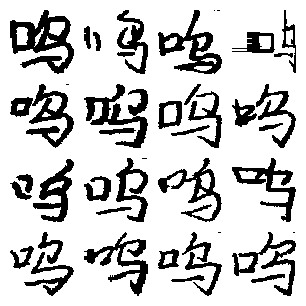 呜呜呜呜
呜呜呜呜
呜呜呜呜
呜呜呜呜